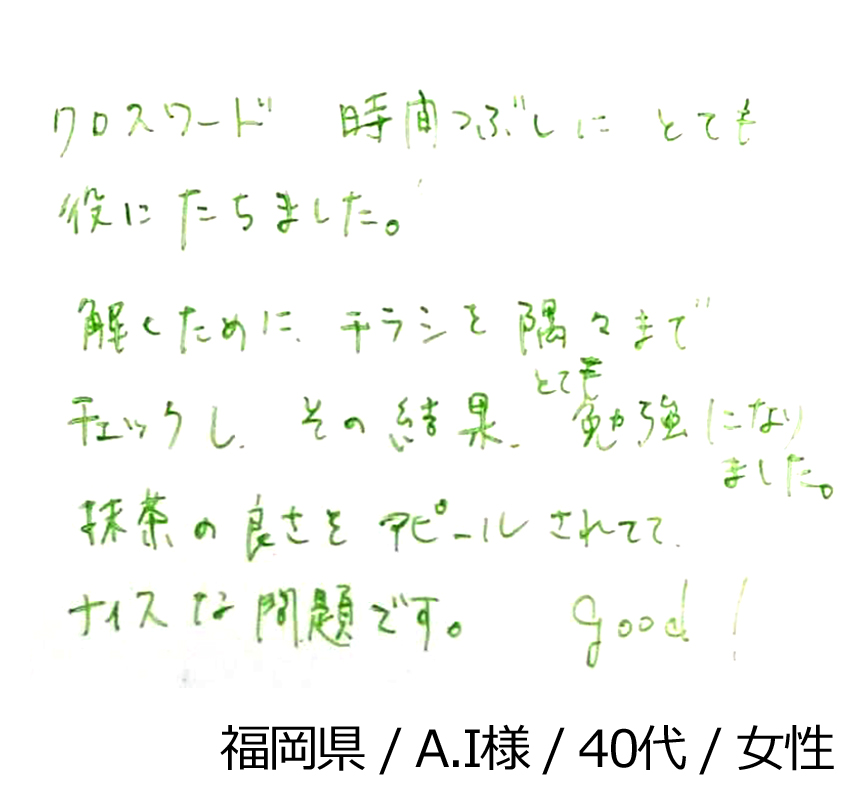 クロスワード 時間つぶしに とても
役にたちました。
解くために、チラシを隅々まで
チェックし、その結果、とても勉強になり
ました。
抹茶の良さをアピールされてて、
ナイスな問題です。 good!
福岡県 / A.I様 / 40代 / 女性